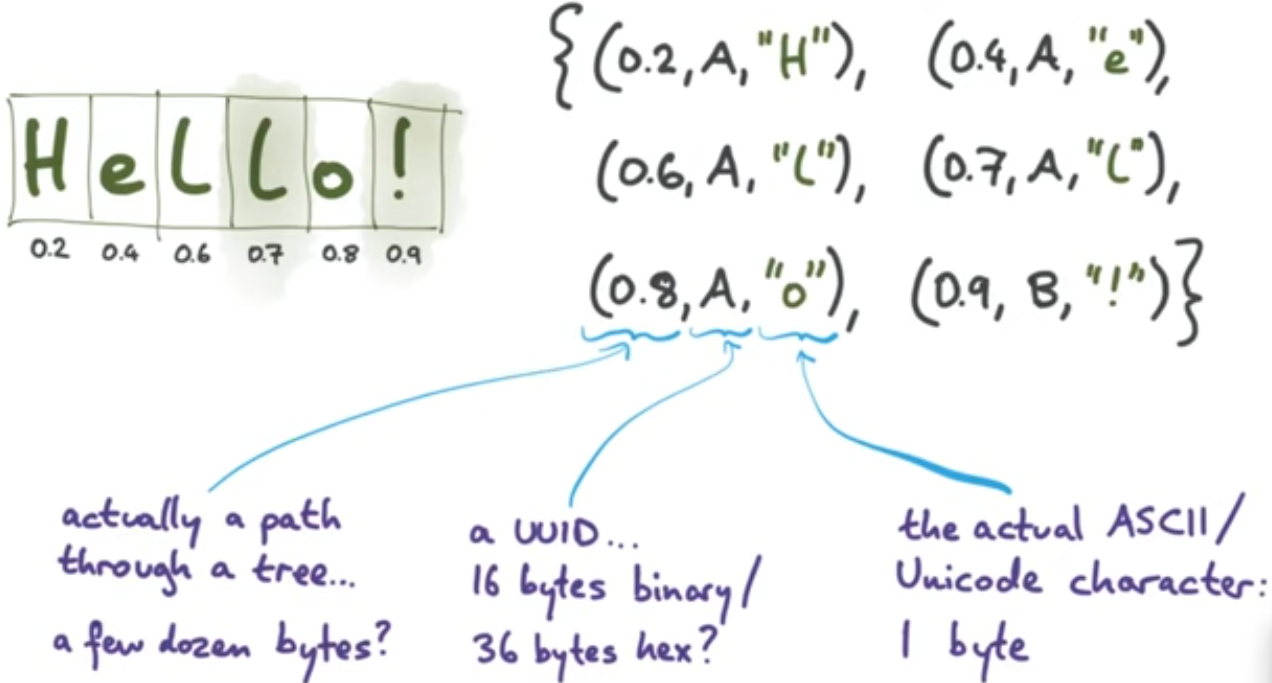 HeLLo!
0.2 0.4 0.6 0.7 0.8 0.9
{(0.2, A, "H"), (0.4, A, "e"),
(0.6, A, "L"), (0.7, A, "L"),
(0.8, A, "o"), (0.9, B, "!")}
actually a path
through a tree...
a few dozen bytes?
a UUID...
16 bytes binary/
36 bytes hex?
the actual ASCII/
Unicode character:
1 byte